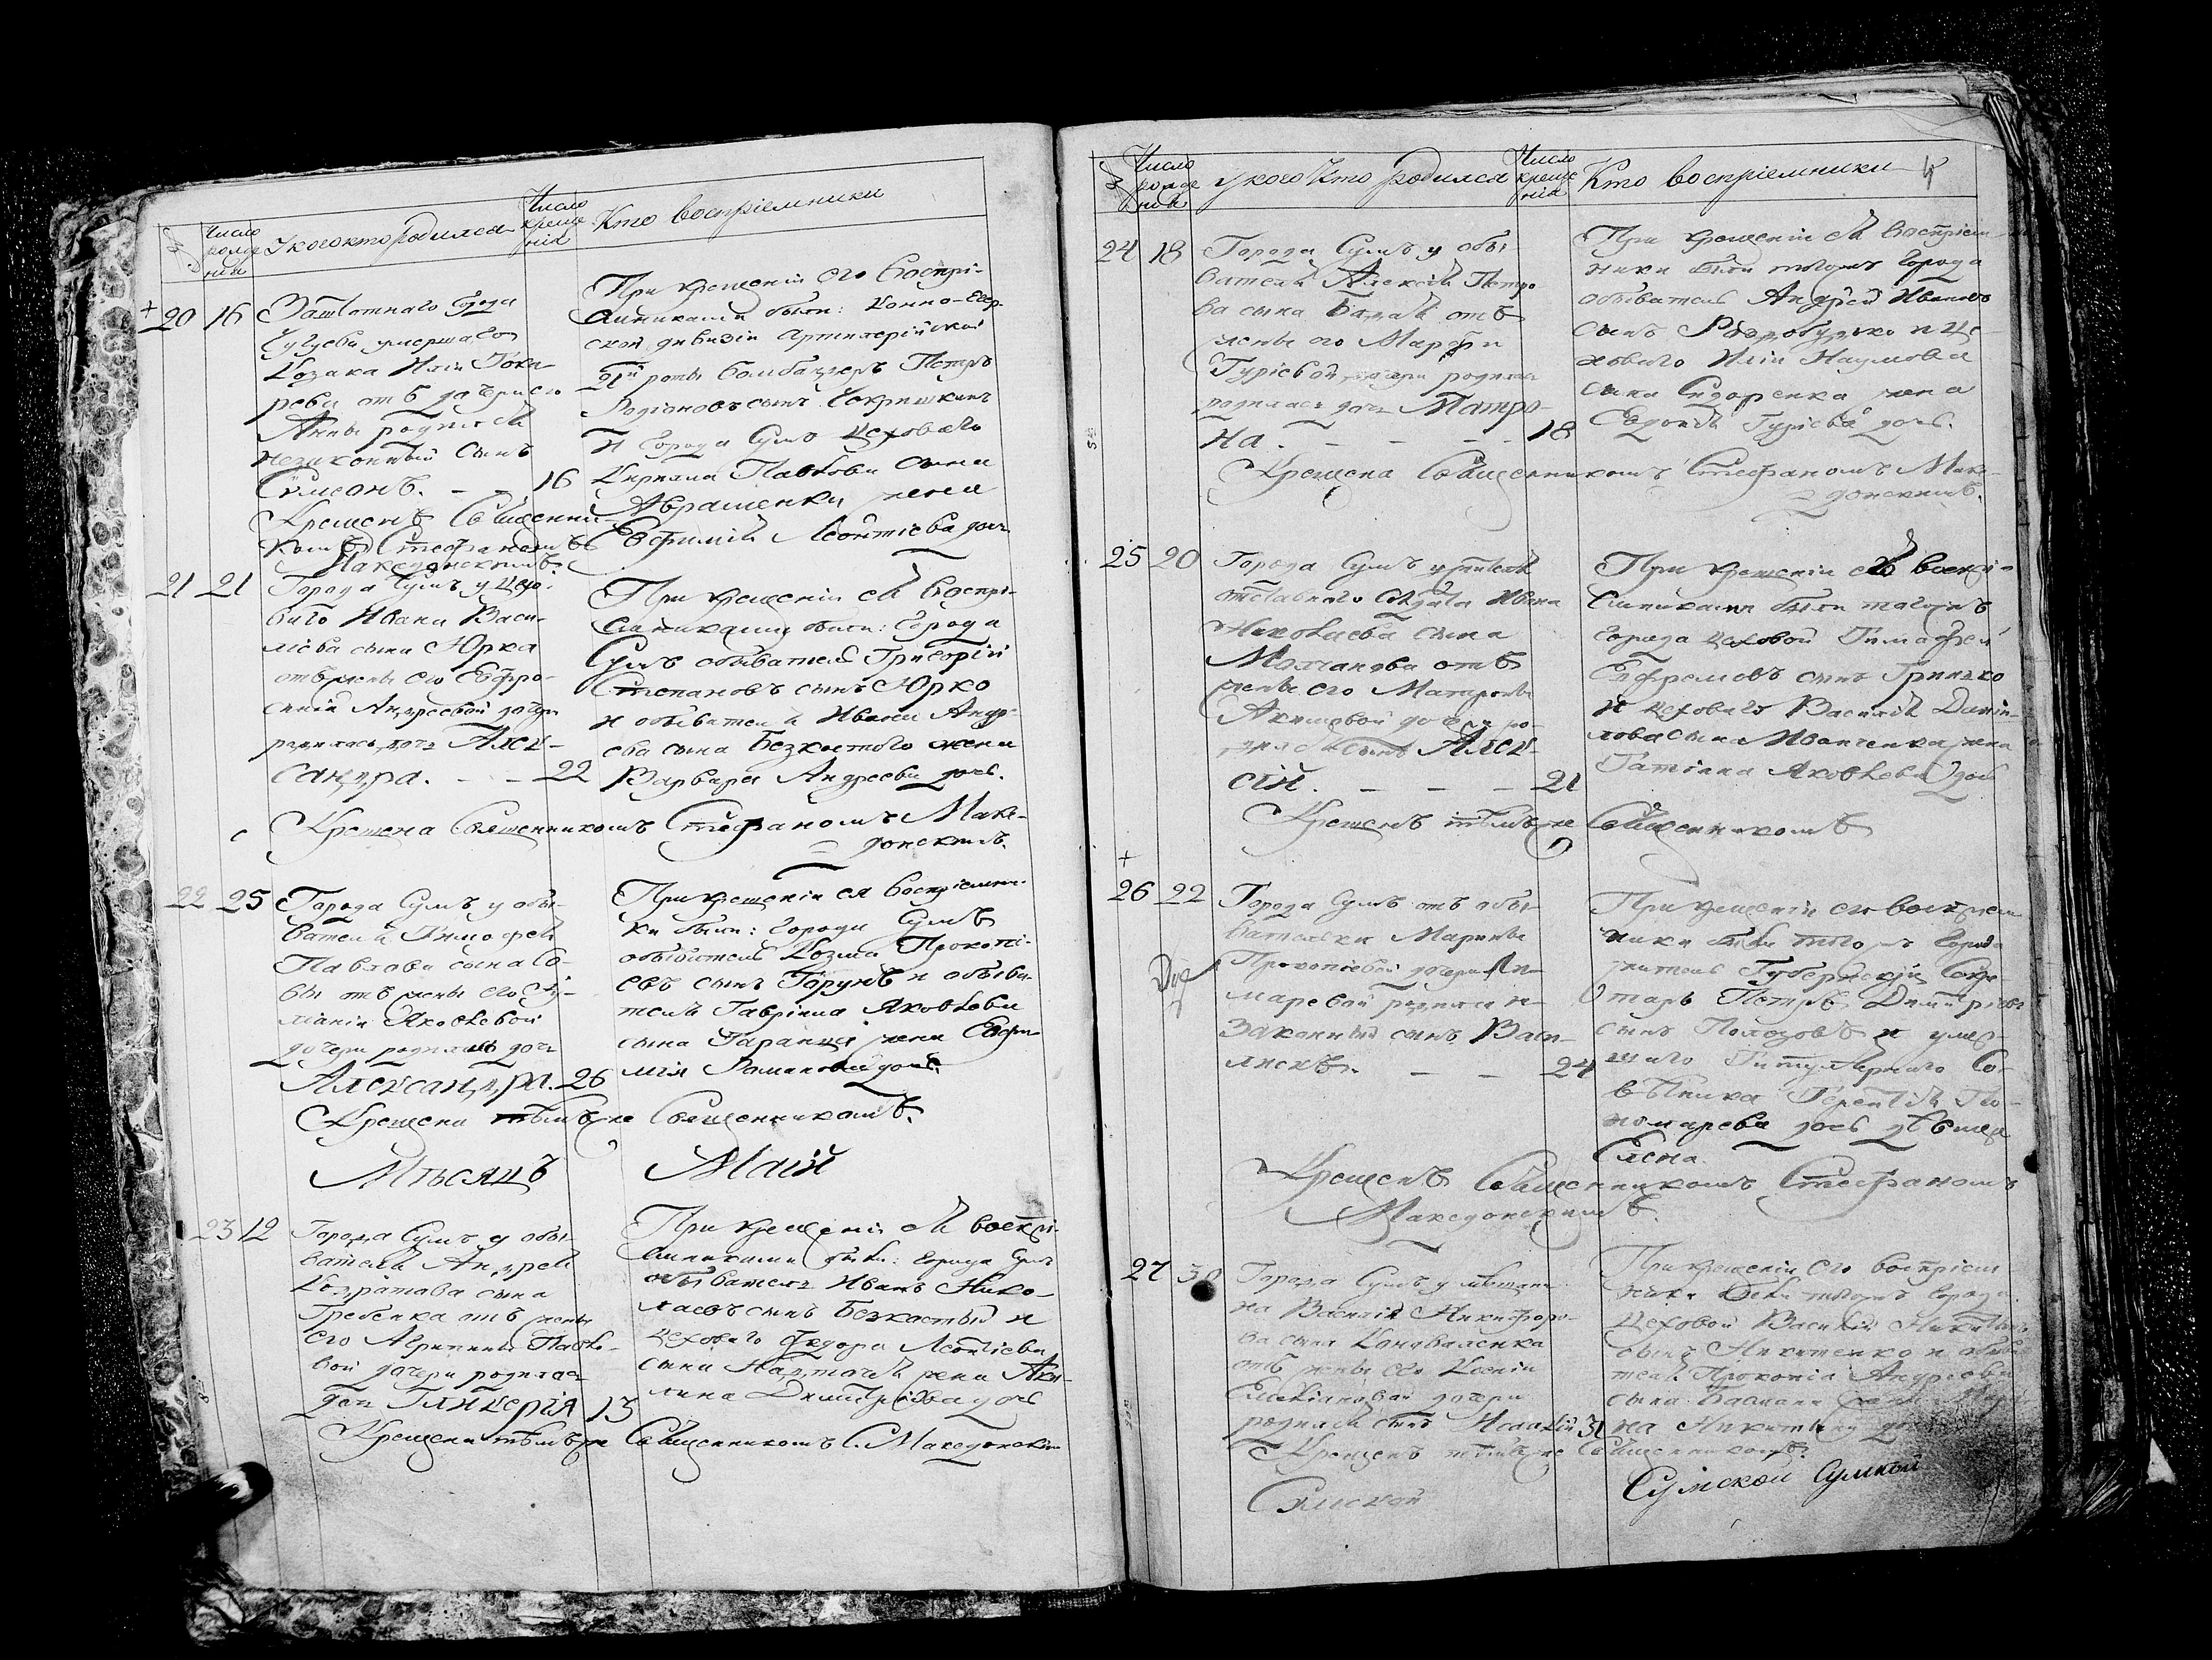 Число рожде нія
У кого кто родился
Число креще нія
Кто воспріемники
20 16
Заштатнаго города
Чугуева умершаго
козака Иліи Тока-
рева отъ дочери его
Анны родился
незаконный сынъ
Симеонъ. - - 16
Крещенъ Священни-
комъ Стефаномъ
Македонскимъ.
При крещеніи его воспрі-
емниками были: Конно-Егер-
ской дивизіи Артиллерійской
21й роты бомбандеръ Петръ
Родіоновъ сынъ
и города Сумъ цеховаго
Кирилла Павлова сына
Авраменка жена
Евфимія Леонтіева дочь
21 21
Города Сумъ у цехо-
ваго Ивана Васи-
ліева сына Юрка
отъ жены его Евфро-
синіи Андреевой дочери
родилась дочь Алек-
сандра. - - 22
При крещеніи ея воспрі-
емниками были: города
Сумъ обыватель Григорій
Степановъ сынъ Юрко
и обывателя Ивана Андре-
ева сына Безкостого жена
Варвара Андреева дочь.
Крещена Священникомъ Стефаномъ Маке-
донскимъ.
22 25
Города Сумъ у обы-
вателя Тимофея
Павлова сына Со-
вы отъ жены его
Яковлевой
дочери родилась дочь
Александра. 26
При крещеніи ея воспріемни-
ки были: города Сумъ
обыватель Козма Прокопі-
евъ сынъ Горунъ и обыва-
тель Гавріила Яковлева
сына жена Евфи-
мія Романова дочь.
Крещена тѣмъ же Священникомъ.
Мѣсяцъ Маій
23 12
Города Сумъ у обы-
вателя Андрея
Кондратова сына
Гребенка отъ жены
его Агрипины Павло-
вой дочери родилась
дочь Гликерія 13
При крещеніи ея воспрі-
емниками были: города Сумъ
обыватель Иванъ Нико-
лаевъ сынъ Безкостый и
цеховаго Федора Леонтіева
сына жена Аки-
лина Димитріева дочь
Крещена тѣмъ же Священникомъ С. Македонскимъ
Число рожде нія
У кого кто родился
Число креще нія
Кто воспріемники
4
24 18
Города Сумъ у обы-
вателя Алексія Петро-
ва сына отъ
жены его Марфы
Гуріевой дочери родилась
родилась дочь Матро-
на. - - - - 18
При крещеніи ея воспріем-
ники были тогожъ города
обыватель Андрей Ивановъ
сынъ и це-
ховаго Иліи Наумова
сына Сидоренка жена
Евдокія Гуріева дочь.
Крещена Священникомъ Стефаномъ Маке-
донскимъ.
25 20
Города Сумъ у жителя
отставнаго солдата Ивана
Николаева сына
Молчанова отъ
жены его Матроны
Акимовой дочери ро-
дился сынъ Алек-
сій. - - - 21
При крещеніи его воспрі-
емниками были тогожъ
города цеховой Тимофей
Ефремовъ сынъ Гринько
и цеховаго Василія Дани-
лова сына Иванченка жена
Татіана Яковлева дочь
Крещенъ тѣмъ же Священникомъ
26 22
Города Сумъ отъ обы-
вательки Марины
Прокопіевой дочери
родился не-
законный сынъ Васи-
лискъ. - - 24
При крещеніи его воспріем-
ники были тогожъ города
житель Губернскій Секре-
тарь Петръ Димитріевъ
сынъ Полозовъ и умер-
шаго Титулярнаго Со-
вѣтника Терентія По-
номарева дочь дѣвица
Елена.
Крещенъ Священникомъ Стефаномъ
Македонскимъ.
27 30
Города Сумъ у мѣщани-
на Василія Никифоро-
ва сына Коноваленка
отъ жены его Ксеніи
Емеліановой дочери
родился сынъ Исаакій 31
При крещеніи его воспріем-
ники были тогожъ города
цеховой Василій Никитинъ
сынъ Никитенко и обыва-
теля Прокопія Андреева
сына жена
на Никитина дочь
Крещенъ тѣмъ же Священникомъ.
Сумской
Сумской Сумкой